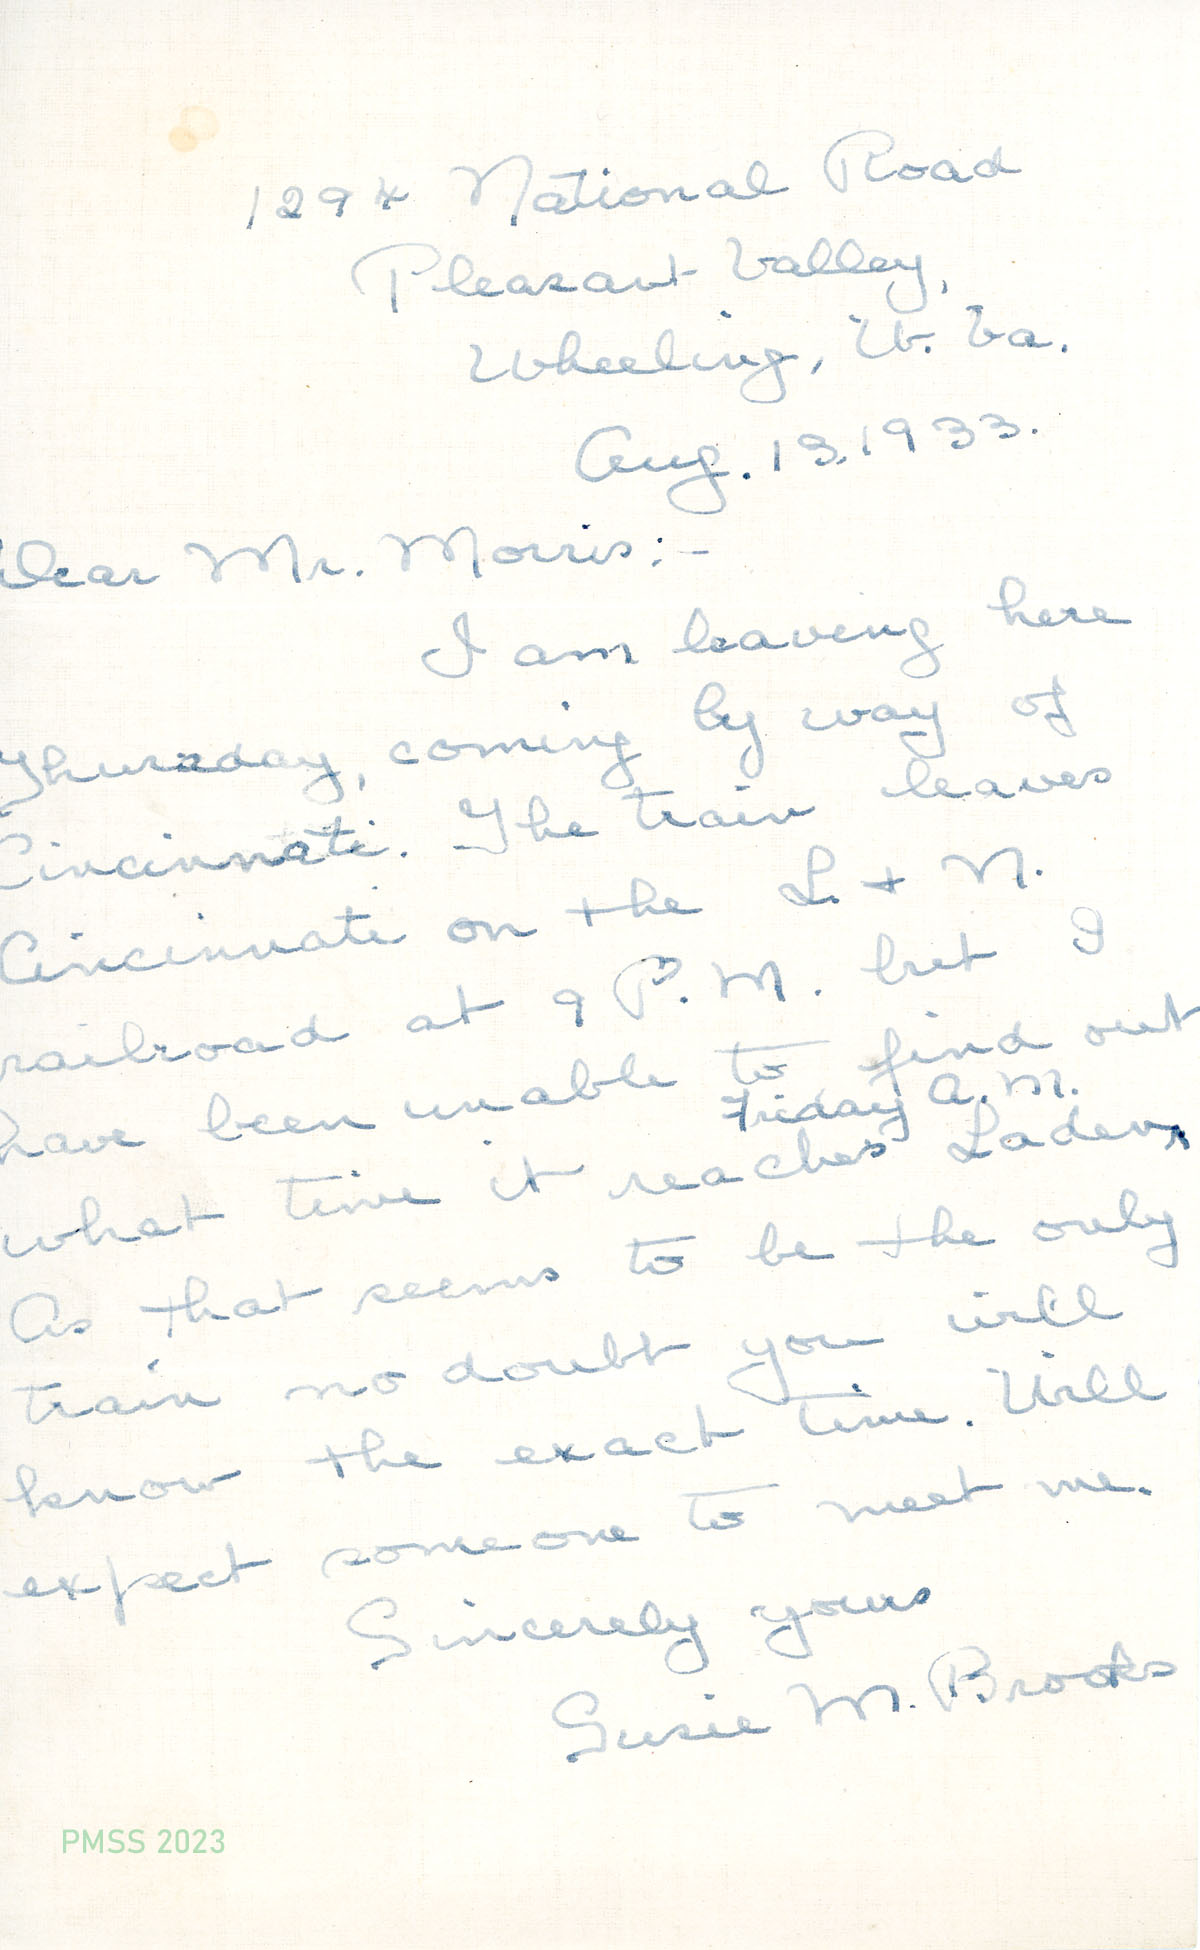 1294 National Road
Pleasant Valley,
Wheeling, W. Va.
Aug. 13, 1933.
Dear Mr. Morris:-
I am leaving here
Thursday, coming by way of
Cincinnati. The train leaves
Cincinnati on the L. + N.
railroad at 9 P.M. but I
have been unable to find out
Friday A.M.
what time it reaches Laden.
As that seems to be the only
train no doubt you will
know the exact time. Will
expect someone to meet me.
Sincerely yours
Susie M. Brooks
PMSS 2023